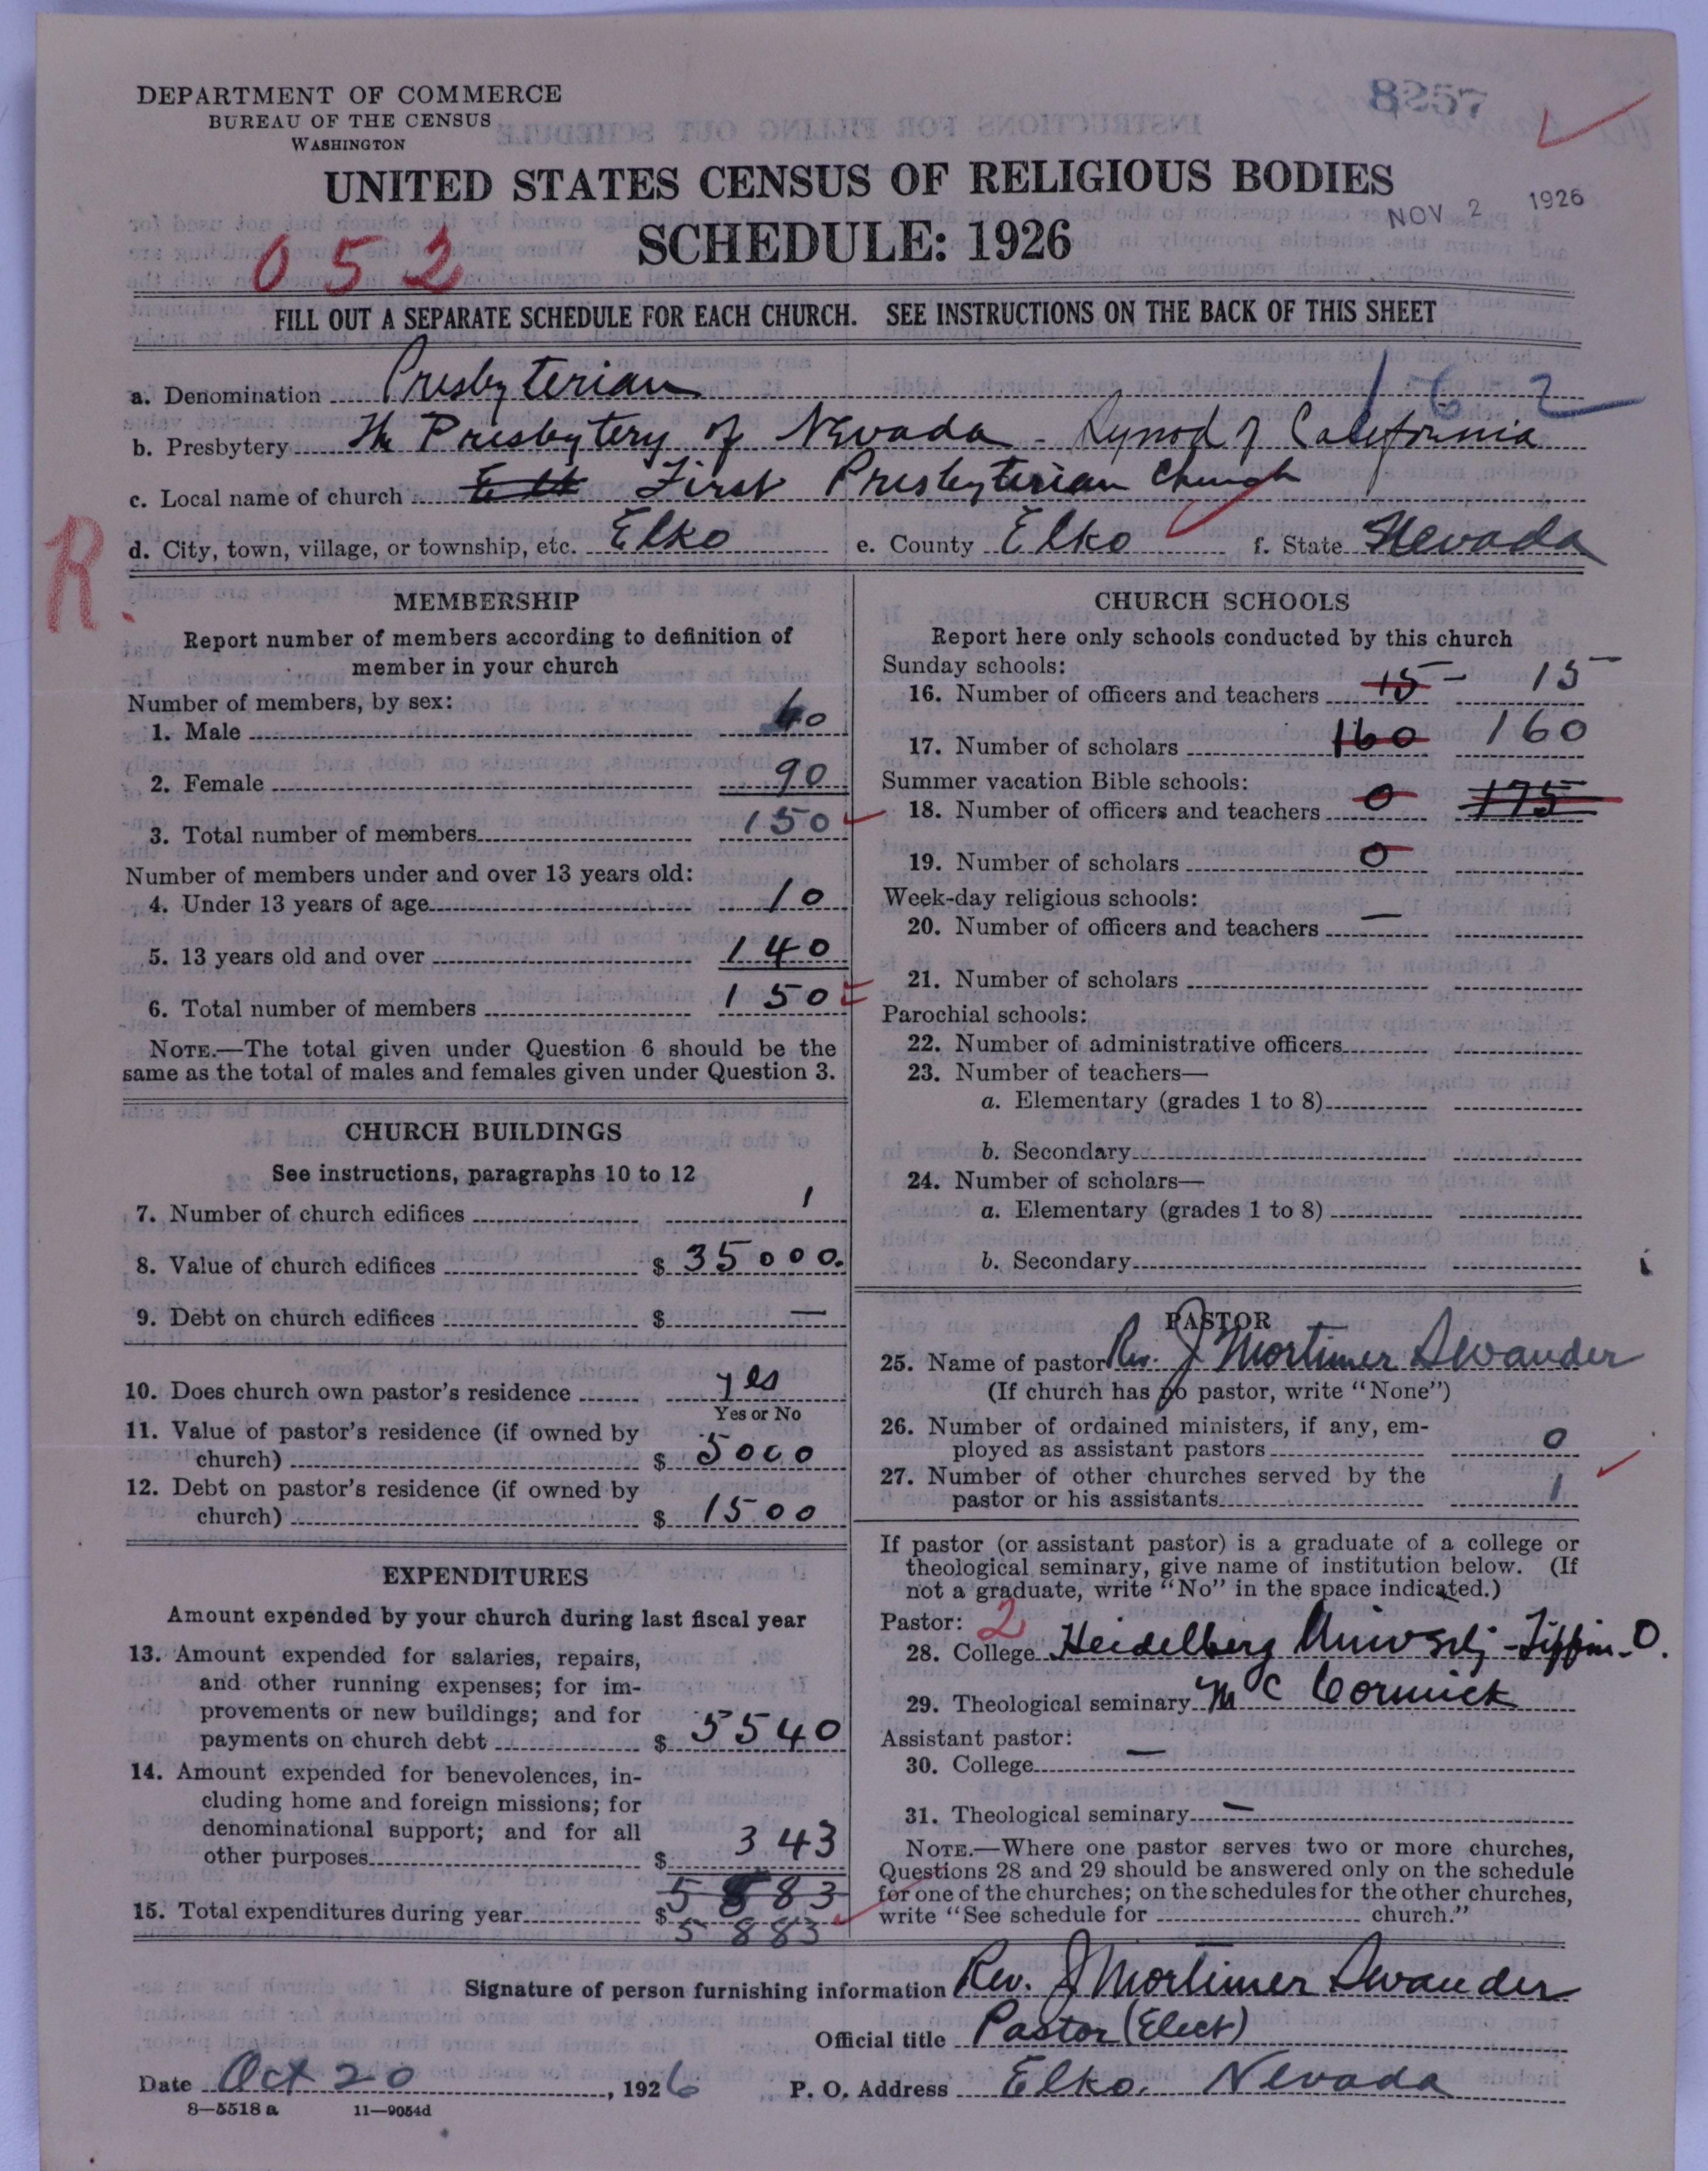 DEPARTMENT OF COMMERCE
BUREAU OF THE CENSUS
WASHINGTON
8257
UNITED STATES CENSUS OF RELIGIOUS BODIES
NOV 2 1926
SCHEDULE: 1926
052
FILL OUT A SEPARATE SCHEDULE FOR EACH CHURCH. SEE INSTRUCTIONS ON THE BACK OF THIS SHEET
162
a. Denomination Presbyterian
b. Presbytery The Presbytery of Nevada - Synod of California
c. Local name of church First Presbyterian Church
R.
d. City, town, village, or township, etc. Elko e. County Elko f. State Nevada
MEMBERSHIP
Report number of members according to definition of
member in your church
Number of members, by sex:
1. Male 60
2. Female 90
3. Total number of members 150
Number of members under and over 13 years old:
4. Under 13 years of age 10
5. 13 years old and over 140
6. Total number of members 150
NOTE.—The total given under Question 6 should be the
same as the total of males and females given under Question 3.
CHURCH BUILDINGS
See instructions, paragraphs 10 to 12
7. Number of church edifices 1
8. Value of church edifices $ 35000.
9. Debt on church edifices $ —
10. Does church own pastor's residence yes
Yes or No
11. Value of pastor's residence (if owned by
church) $ 5000
12. Debt on pastor's residence (if owned by
church) $ 1500
EXPENDITURES
Amount expended by your church during last fiscal year
13. Amount expended for salaries, repairs,
and other running expenses; for im-
provements or new buildings; and for
payments on church debt $ 5540
14. Amount expended for benevolences, in-
cluding home and foreign missions; for
denominational support; and for all
other purposes $ 343
5883
15. Total expenditures during year $ 5883
CHURCH SCHOOLS
Report here only schools conducted by this church
Sunday schools:
16. Number of officers and teachers 15 — 15
17. Number of scholars 160 160
Summer vacation Bible schools:
18. Number of officers and teachers 0 175
19. Number of scholars 0
Week-day religious schools:
20. Number of officers and teachers —
21. Number of scholars
Parochial schools:
22. Number of administrative officers
23. Number of teachers—
a. Elementary (grades 1 to 8)
b. Secondary
24. Number of scholars—
a. Elementary (grades 1 to 8)
b. Secondary
PASTOR
25. Name of pastor Rev. J Mortimer Swander
(If church has no pastor, write "None")
26. Number of ordained ministers, if any, em-
ployed as assistant pastors 0
27. Number of other churches served by the
pastor or his assistants 1
If pastor (or assistant pastor) is a graduate of a college or
theological seminary, give name of institution below. (If
not a graduate, write "No" in the space indicated.)
Pastor: 2
28. College Heidelberg University - Tiffin - O.
29. Theological seminary McCormick
Assistant pastor:
30. College —
31. Theological seminary —
NOTE.—Where one pastor serves two or more churches,
Questions 28 and 29 should be answered only on the schedule
for one of the churches; on the schedules for the other churches,
write "See schedule for church."
Signature of person furnishing information Rev. J Mortimer Swander
Official title Pastor (Elect)
Date Oct 20, 1926 P. O. Address Elko, Nevada
8—5518 a 11—9054d